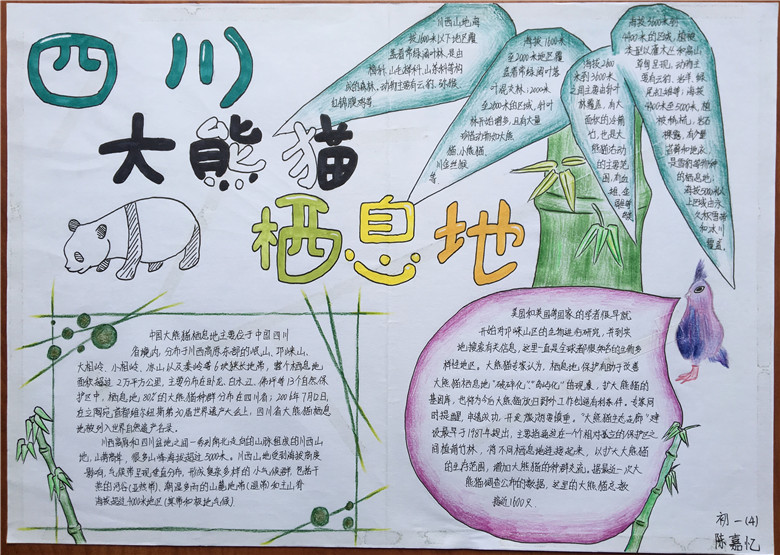 四川
大熊猫
栖息地
川西山地，海
拔1600米以下地区覆
盖着常绿阔叶林，是由
楠科、山毛榉科、山茶科等构
成的森林。动物主要有云豹、猕猴、
红腹角雉等。
海拔1600米
至2000米地区覆
盖着常绿阔叶落
叶混交林；2000米
至2800米的区域，针叶
林开始增多，且有大量
珍稀动物如大熊
猫、小熊猫、
川金丝猴
等。
海拔2800
米到3600米
之间主要由针叶
林覆盖，有大
面积的冷箭
竹，也是大
熊猫活动
的主要范
围，有血
雉、金
海拔3600米到
4400米的区域，植被
类型以灌木丛和高山
草甸呈现，动物主
要有云豹、岩羊、绿
尾虹雉等；海拔
4400米至5000米，植
被稀疏，岩石
裸露，有少量
苔藓和地衣，
是雪豹等物种
的栖息地；
海拔5000米以
上区域由永
久积雪带
和冰川
覆盖。
中国大熊猫栖息地主要位于中国四川
省境内，分布于川西高原东部的岷山、邛崃山、
大相岭、小相岭、凉山以及秦岭等6块狭长地带，整个栖息地
面积超过2万平方公里，主要分布在卧龙、白水江、佛坪等13个自然保
护区中，栖息地80%的大熊猫种群分布在四川省；2006年7月12日，
在立陶宛首都维尔纽斯第30届世界遗产大会上，四川省大熊猫栖息
地被列入世界自然遗产名录。
川西高原和四川盆地之间一系列南北走向的山脉组成的川西山
地，山高谷深，很多山峰海拔超过5000米。川西山地受到海拔高度
影响，气候带呈现垂直分布，形成复杂多样的小气候群，包括干
热的河谷(亚热带)、潮湿多雨的山麓地带(温带)和主山脊
海拔超过4000米地区(寒带和极地气候)
英国和美国等国家的学者很早就
开始对邛崃山区的生物进行研究，并到实
地搜索有关信息，这里一直是全球都颇负名的生物多
样性地区。大熊猫专家认为，栖息地保护有助于改善
大熊猫栖息地“破碎化”、“岛屿化”的现象，扩大熊猫的
基因库，也将为今后大熊猫放归野外工作创造有利条件。专家同
时提醒，申遗成功，开发旅游要慎重。“大熊猫生态走廊”建
设最早于1987年提出，主要措施是在一个相对孤立的保护区之
间植树竹林，将不同栖息地连接起来，以扩大大熊猫
的生存范围，增加大熊猫的种群交流。据最近一次大
熊猫调查公布的数据，这里的大熊猫总数
接近1600只
初一(4)
陈嘉忆